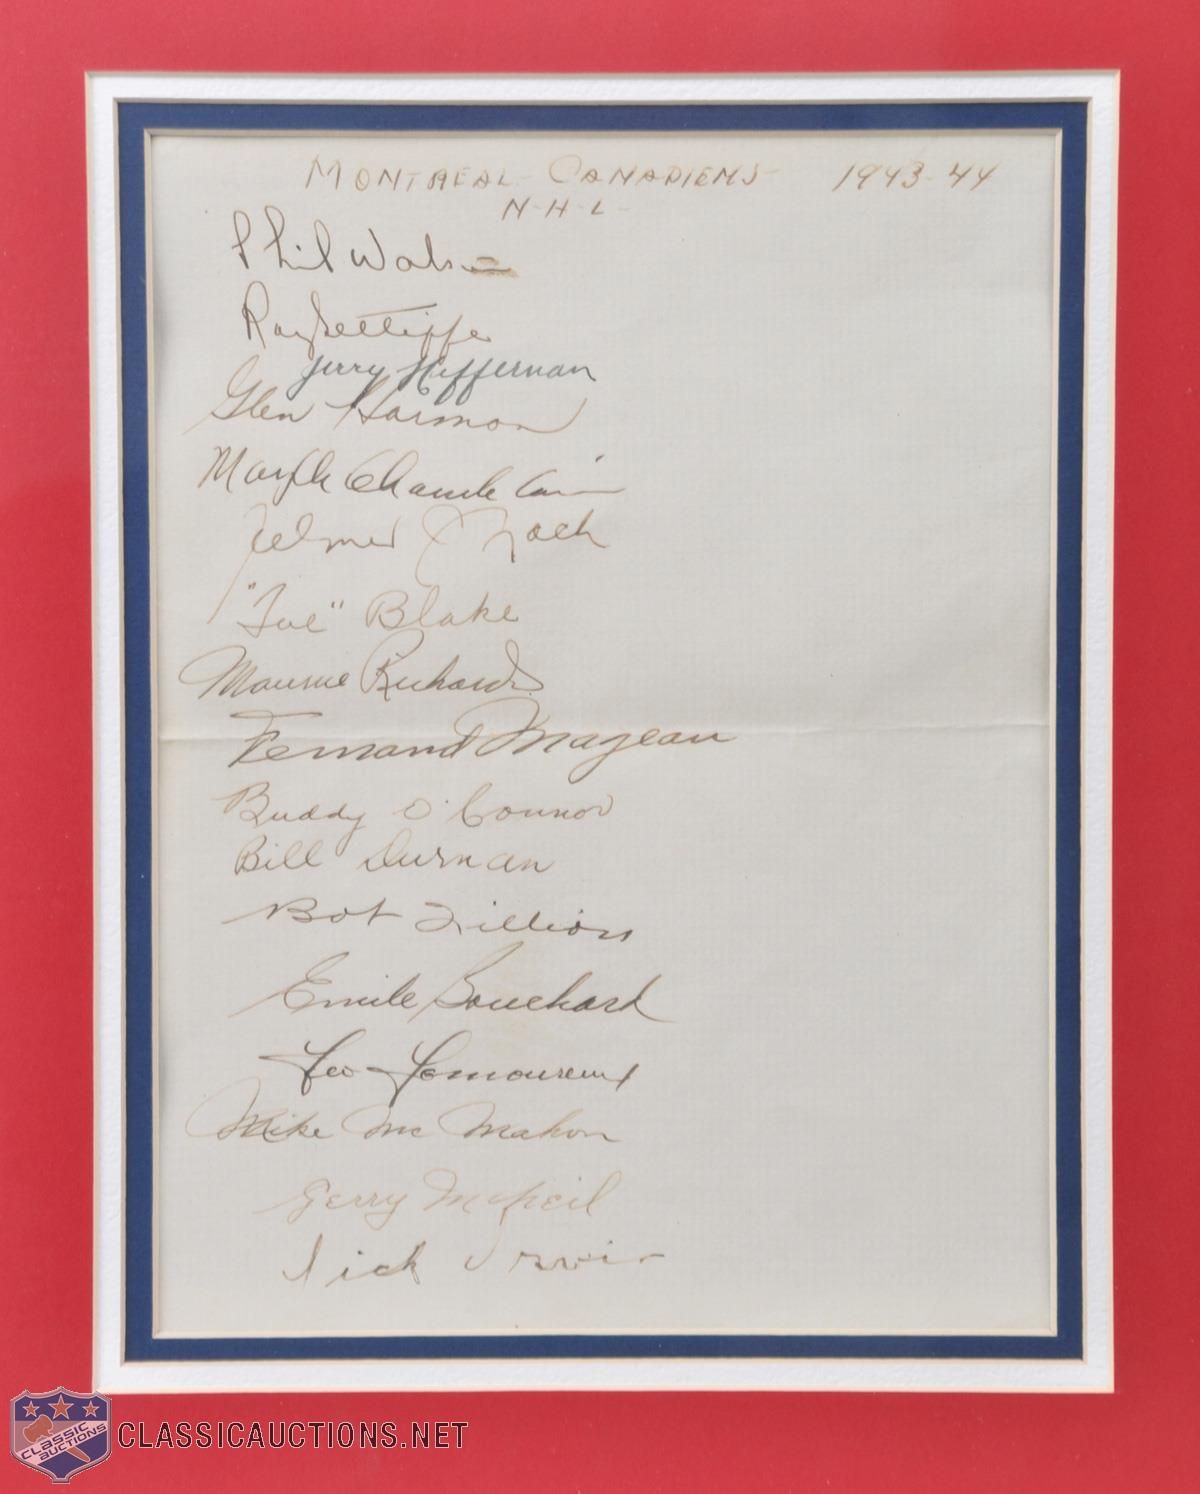 MONTREAL - CANADIENS - 1943-44
N-H-L-
Phil Watson
Ray Getliffe
Jerry Heffernan
Glen Harmon
Murph Chamberlain
Elmer J Lach
"Toe" Blake
Maurice Richard
Fernand Majeau
Buddy O'Connor
Bill Durnan
Bob Fillion
Emile Bouchard
Leo Lamoureux
Mike McMahon
Gerry McNeil
Dick Irvin
CLASSIC AUCTIONS
CLASSICAUCTIONS.NET